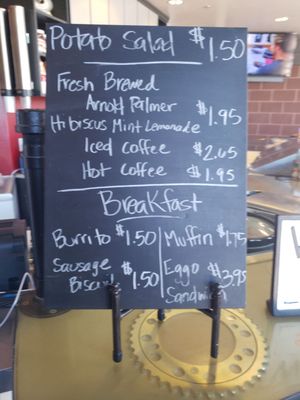 Potato Salad $1.50
Fresh Brewed
Arnold Palmer
Hibiscus Mint Lemonade $1.95
Iced Coffee $2.65
Hot Coffee $1.95
Breakfast
Burrito $1.50
Sausage
Biscuit $1.50
Muffin $1.75
Eggo $3.95
Sandwich